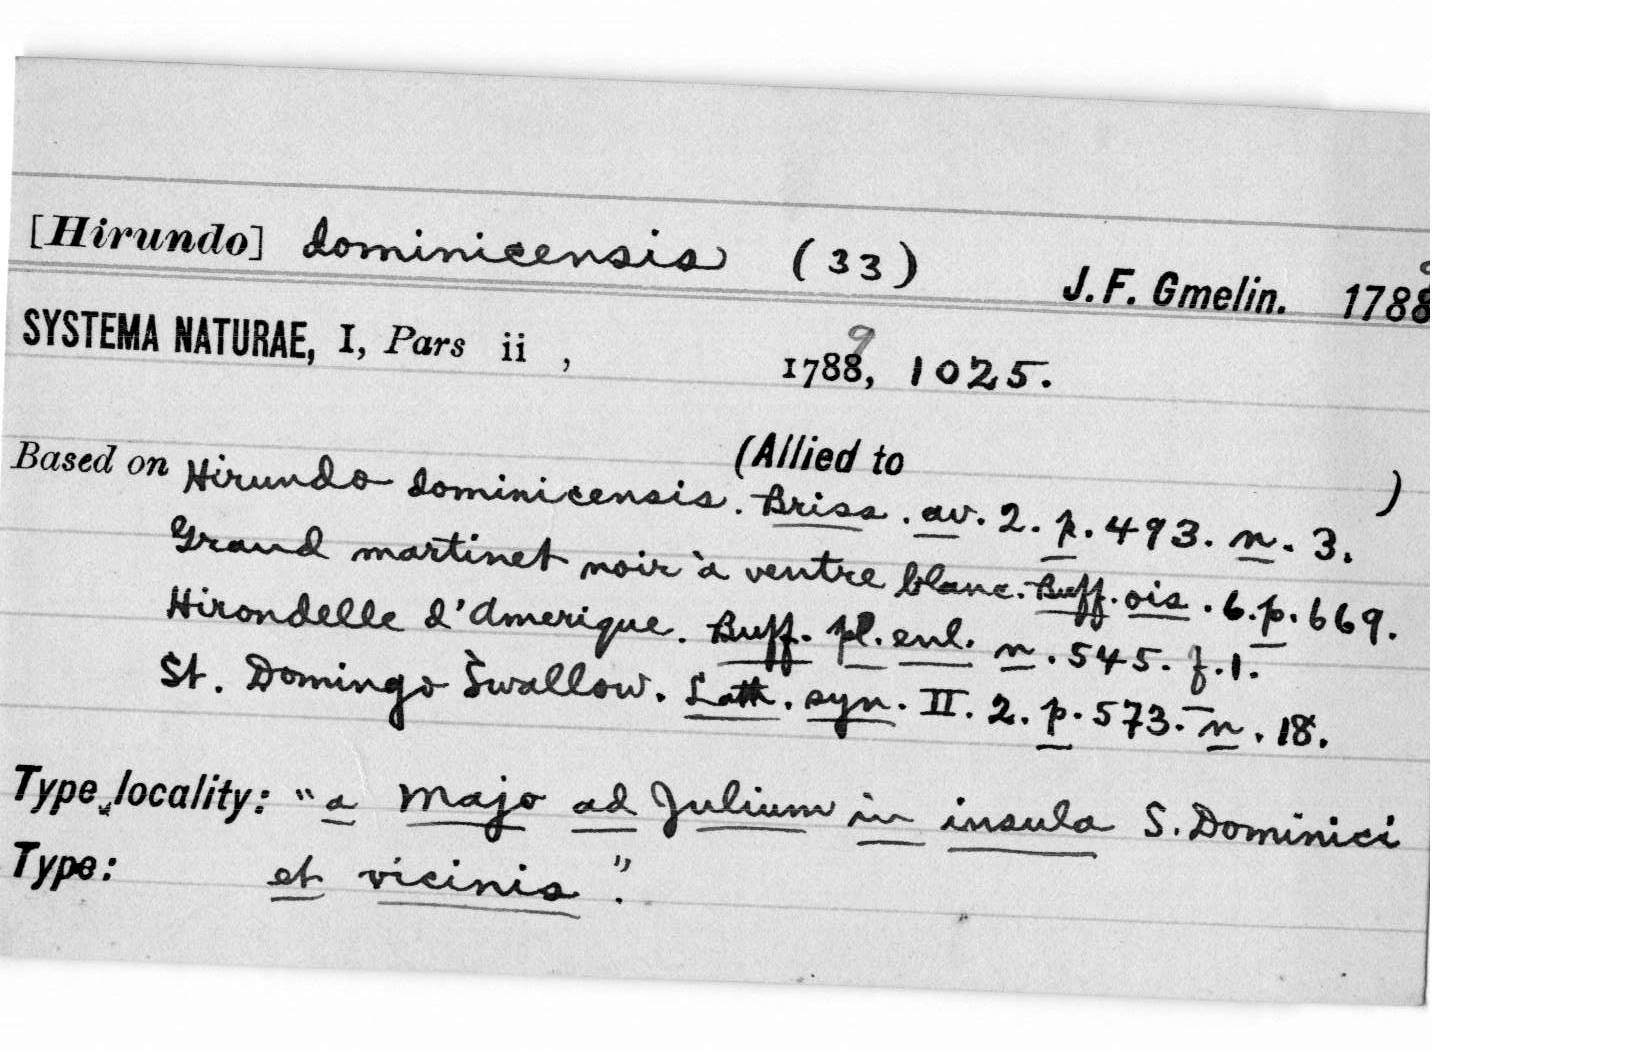 [Hirundo] dominicensis (33) J. F. Gmelin. 1788 9
SYSTEMA NATURAE, I, Pars ii , 1788 9, 1025.
(Allied to )
Based on Hirundo dominicensis. Briss. av. 2. p. 493. n. 3.
Grand martinet noir à ventre blanc. Buff. ois. 6. p. 669.
Hirondelle d'Amerique. Buff. pl. enl. n. 545. f. 1.
St. Domingo Swallow. Lath. syn. II. 2. p. 573. n. 18.
Type locality: "a Majo ad Julium in insula S. Dominici
Type: et vicinis".